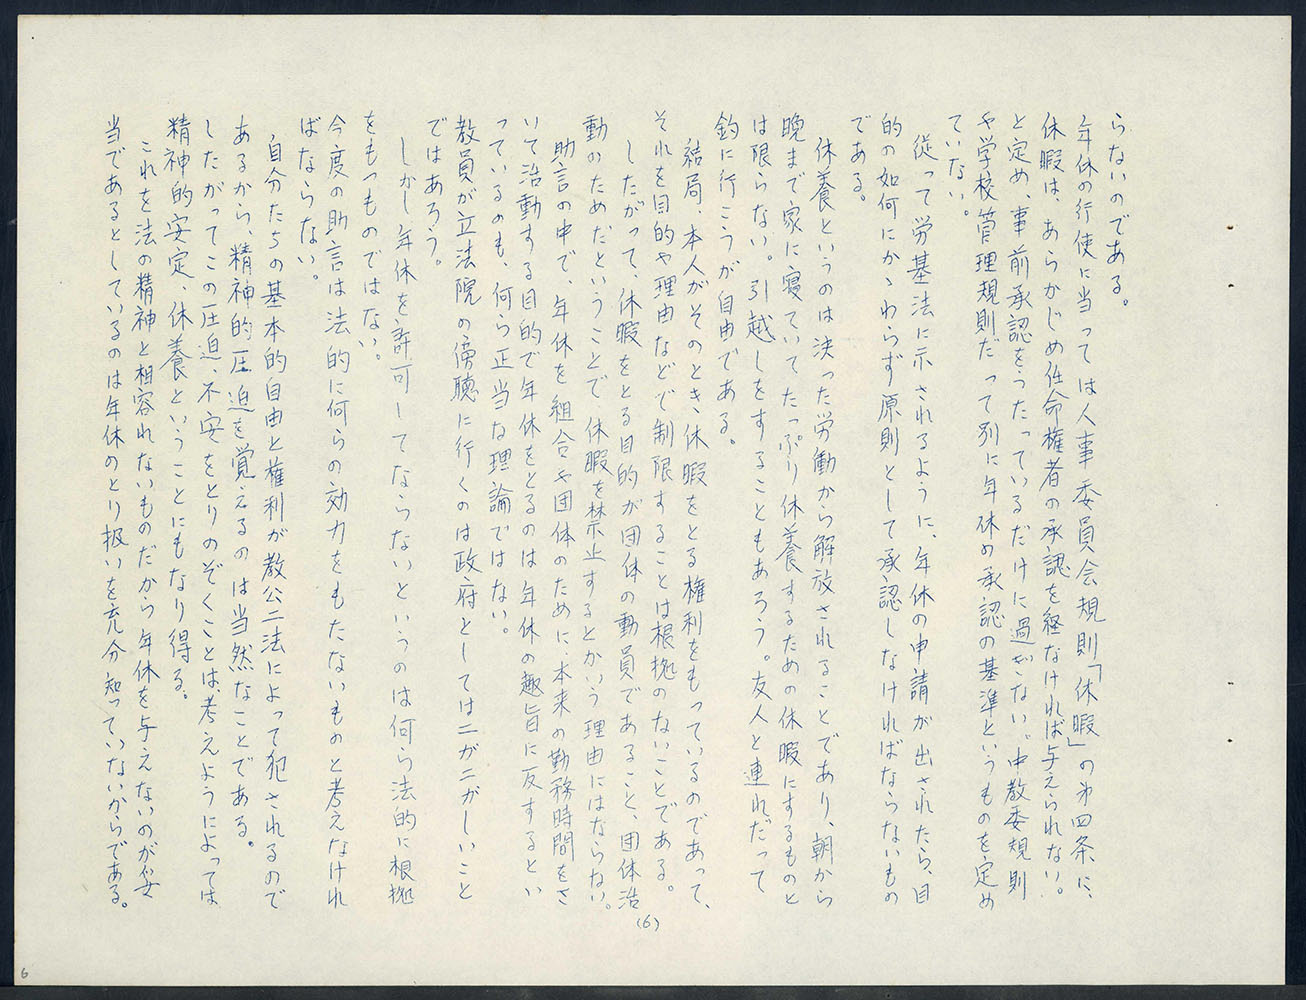 らないのである。
年休の行使に当っては人事委員会規則「休暇」の第四条に、
休暇は、あらかじめ任命権者の承認を経なければ与えられない。
と定め、事前承認をうたっているだけに過ぎない。中教委規則
や学校管理規則だって別に年休の承認の基準というものを定め
ていない。
従って労基法に示されるように、年休の申請が出されたら、目
的の如何にかゝわらず原則として承認しなければならないもの
である。
休養というのは決った労働から解放されることであり、朝から
晩まで家に寝ていてたっぷり休養するための休暇にするものと
は限らない。引越しをすることもあろう。友人と連れだって
釣に行こうが自由である。
結局、本人がそのとき、休暇をとる権利をもっているのであって、
それを目的や理由などで制限することは根拠のないことである。
したがって、休暇をとる目的が団体の動員であること、団体活
動のためだということで休暇を禁止するとかいう理由にはならない。
助言の中で、年休を組合や団体のために、本来の勤務時間をさ
いて活動する目的で年休をとるのは年休の趣旨に反するとい
っているのも、何ら正当な理論ではない。
教員が立法院の傍聴に行くのは政府としてはニガニガしいこと
ではあろう。
しかし年休を許可してならないというのは何ら法的に根拠
をもつものではない。
今度の助言は法的に何らの効力をもたないものと考えなけれ
ばならない。
自分たちの基本的自由と権利が教公二法によって犯されるので
あるから、精神的圧迫を覚えるのは当然なことである。
したがってこの圧迫、不安をとりのぞくことは考えようによっては
精神的安定、休養ということにもなり得る。
これを法の精神と相容れないものだから年休を与えないのが妥
当であるとしているのは年休のとり扱いを充分知っていないからである。
(6)
6